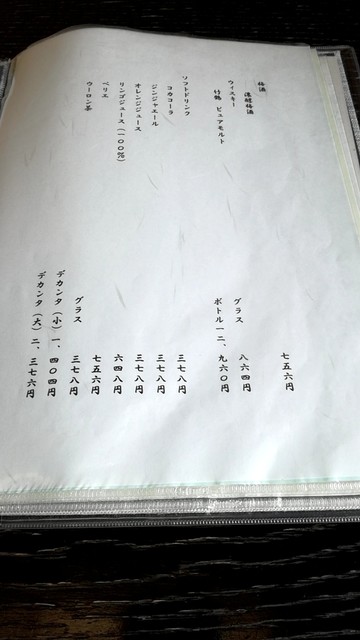 梅酒
濃醇梅酒 七五六円
ウィスキー
竹鶴 ピュアモルト グラス 八六四円
ボトル 一二、九六〇円
ソフトドリンク
コカコーラ 三七八円
ジンジャエール 三七八円
オレンジジュース 三七八円
リンゴジュース(一〇〇%) 六四八円
ペリエ 七五六円
ウーロン茶 グラス 三七八円
デカンタ(小) 一、四〇四円
デカンタ(大) 二、三七六円